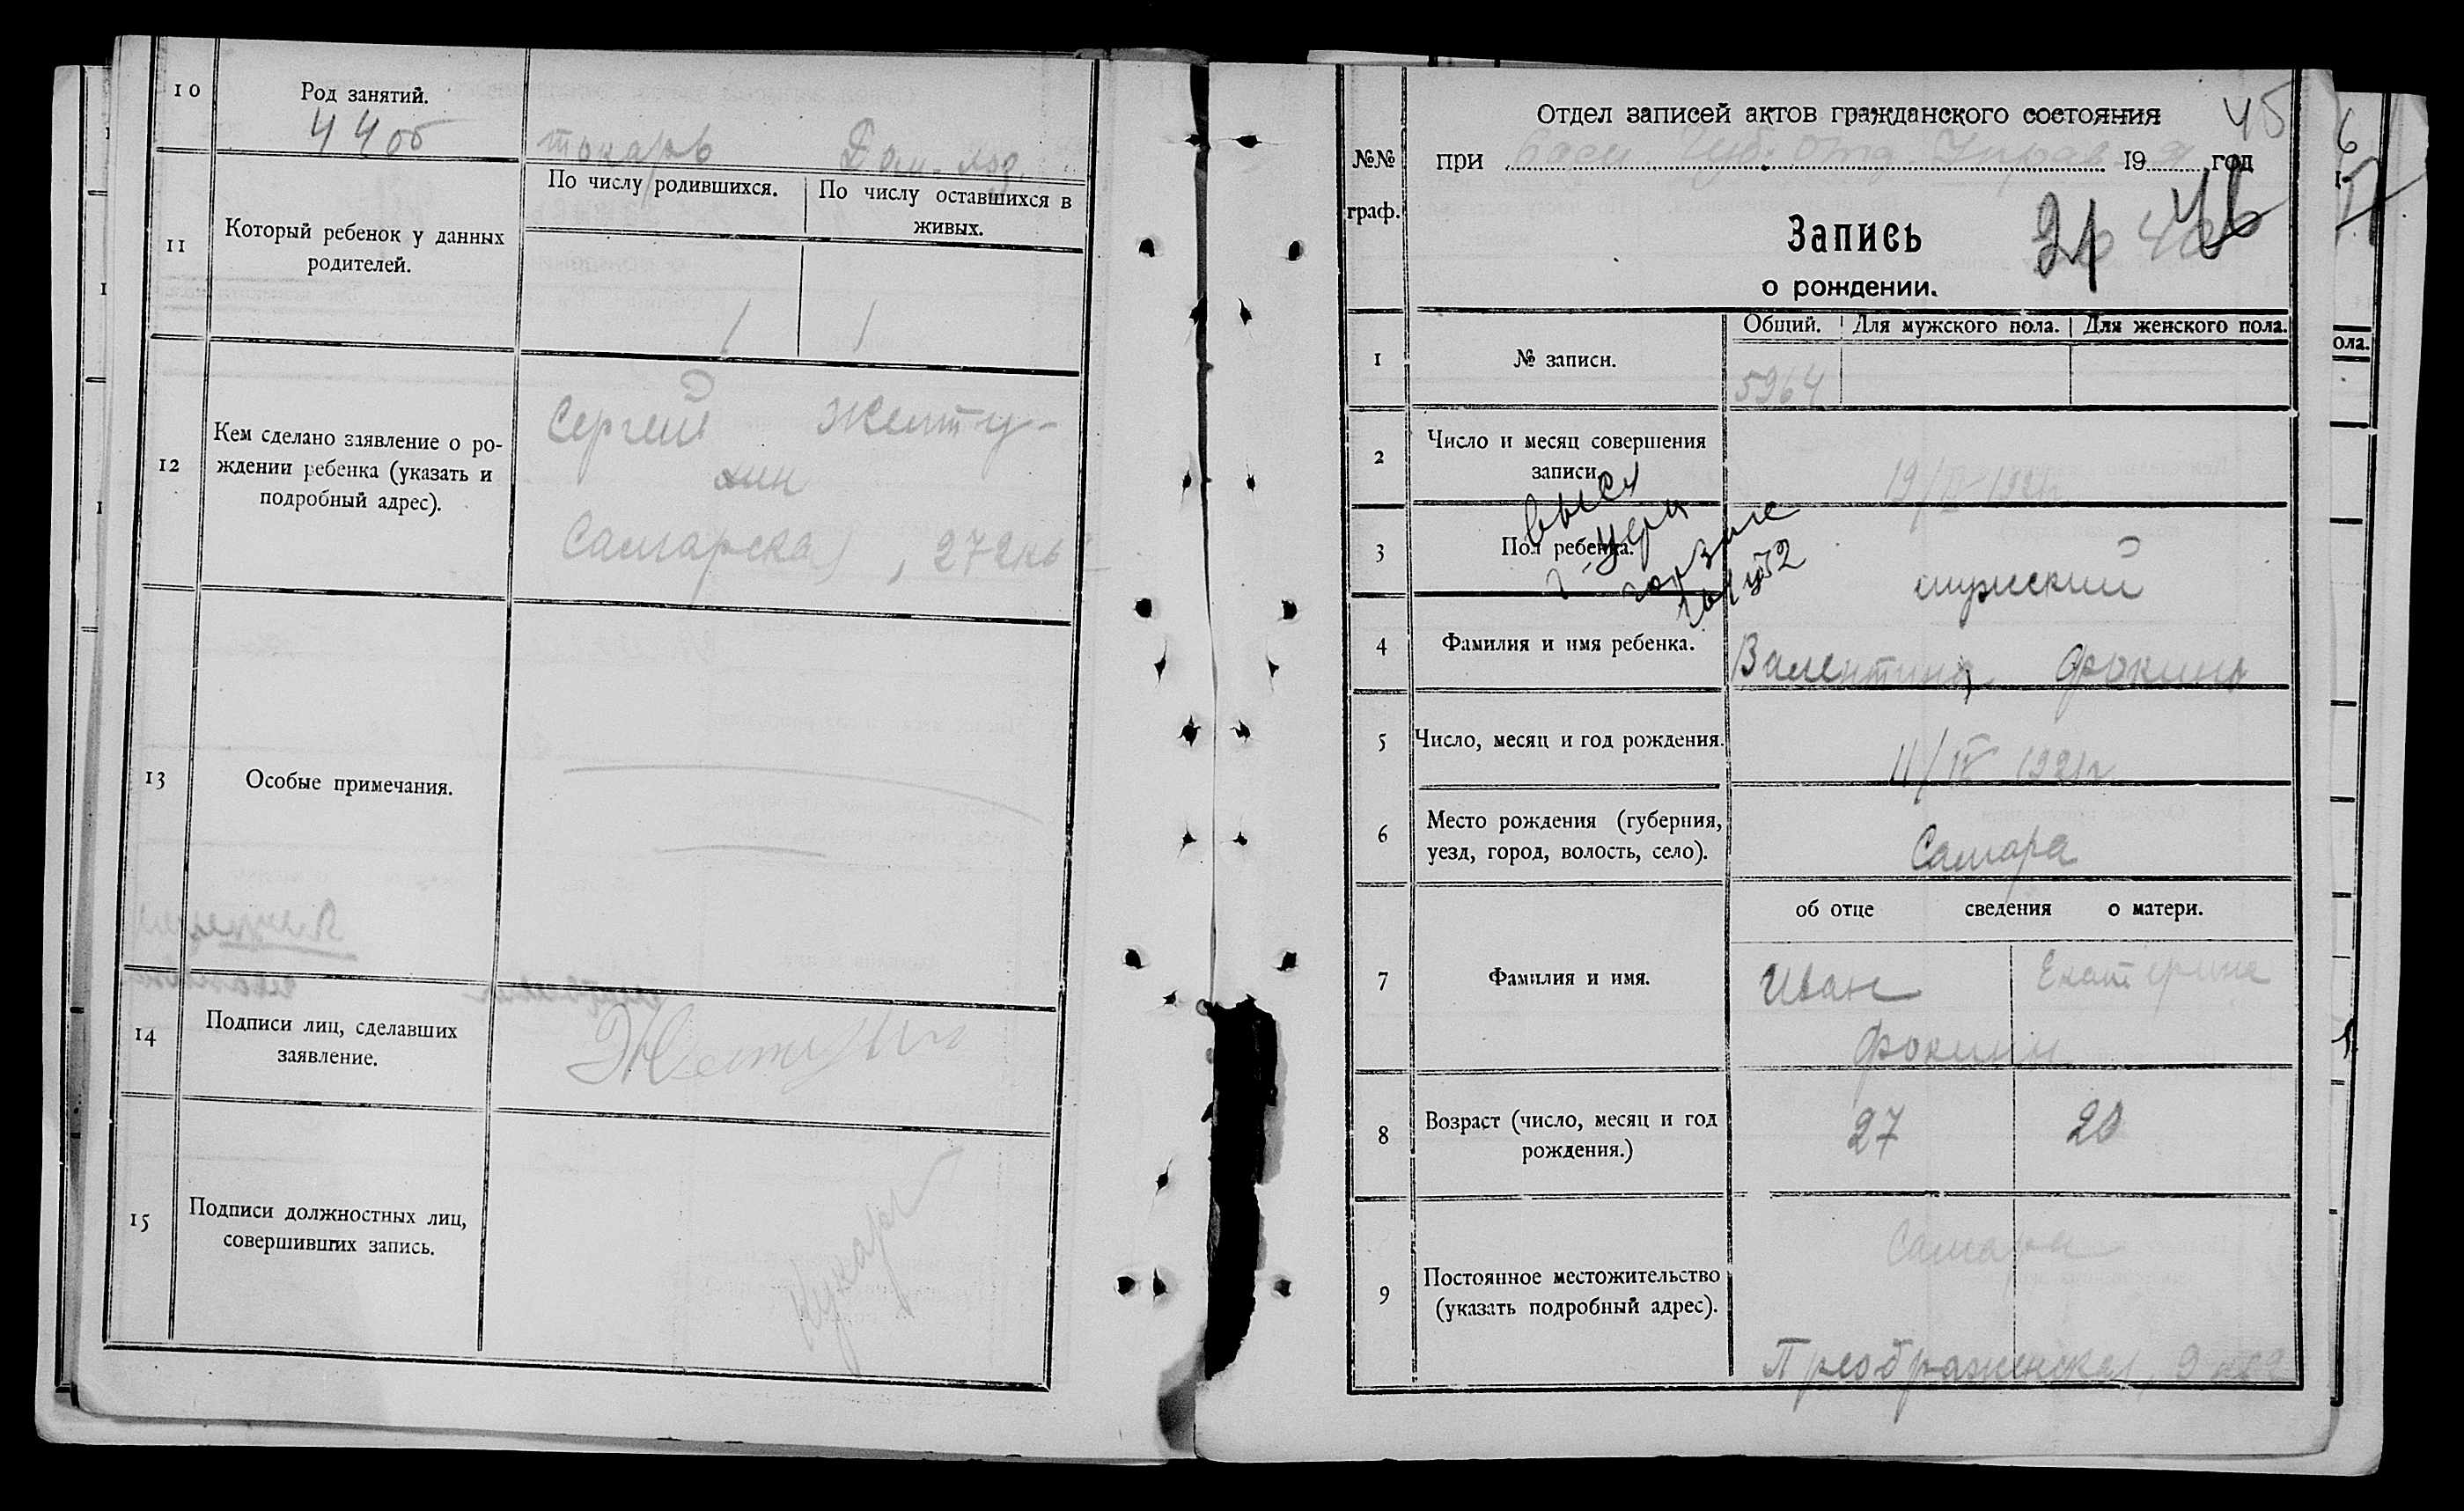 10
Род занятий.
44 об
токарь
Дом. хоз.
11
Который ребенок у данных
родителей.
По числу родившихся.
По числу оставшихся в
живых.
1
1
12
Кем сделано заявление о ро-
ждении ребенка (указать и
подробный адрес).
Сергей Желту-
хин
Самарская, 272 кв
13
Особые примечания.
14
Подписи лиц, сделавших
заявление.
Желтухин
15
Подписи должностных лиц,
совершивших запись.
№№
граф.
Отдел записей актов гражданского состояния
45
при
19
год
Запись
46
о рождении.
1
№ записи.
Общий.
Для мужского пола.
Для женского пола.
5964
2
Число и месяц совершения
записи
3
Пол ребенка.
мужский
4
Фамилия и имя ребенка.
Валентин Фокин
5
Число, месяц и год рождения.
11/IV 1921г
6
Место рождения (губерния,
уезд, город, волость, село).
Самара
об отце
сведения
о матери.
7
Фамилия и имя.
Иван
Екатерина
Фокины
8
Возраст (число, месяц и год
рождения.)
27
20
9
Постоянное местожительство
(указать подробный адрес).
Самара
Преображенская, 9
6
ола.